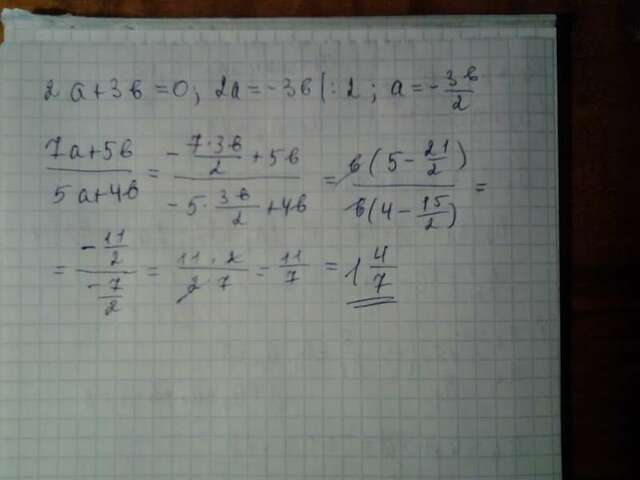 2a+3в=0; 2a=-3в|:2; a=-3в/2
7a+5в/5a+4в = -7·3в/2+5в/-5·3в/2+4в = в(5-21/2)/в(4-15/2) =
= -11/2/-7/2 = 11·2/2·7 = 11/7 = 1 4/7